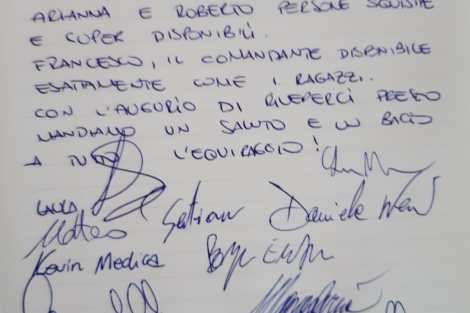 ARIANNA E ROBERTO PERSONE SQUISITE
E SUPER DISPONIBILI.
FRANCESCO, IL COMANDANTE DISPONIBILE
ESATAMENTE COME I RAGAZZI.
CON L'AUGURIO DI RIVEDERCI PRESTO
MANDIAMO UN SALUTO E UN BACIO
A TUTTO L'EQUIPAGGIO!
Matteo
Daniele
Kevin Medica